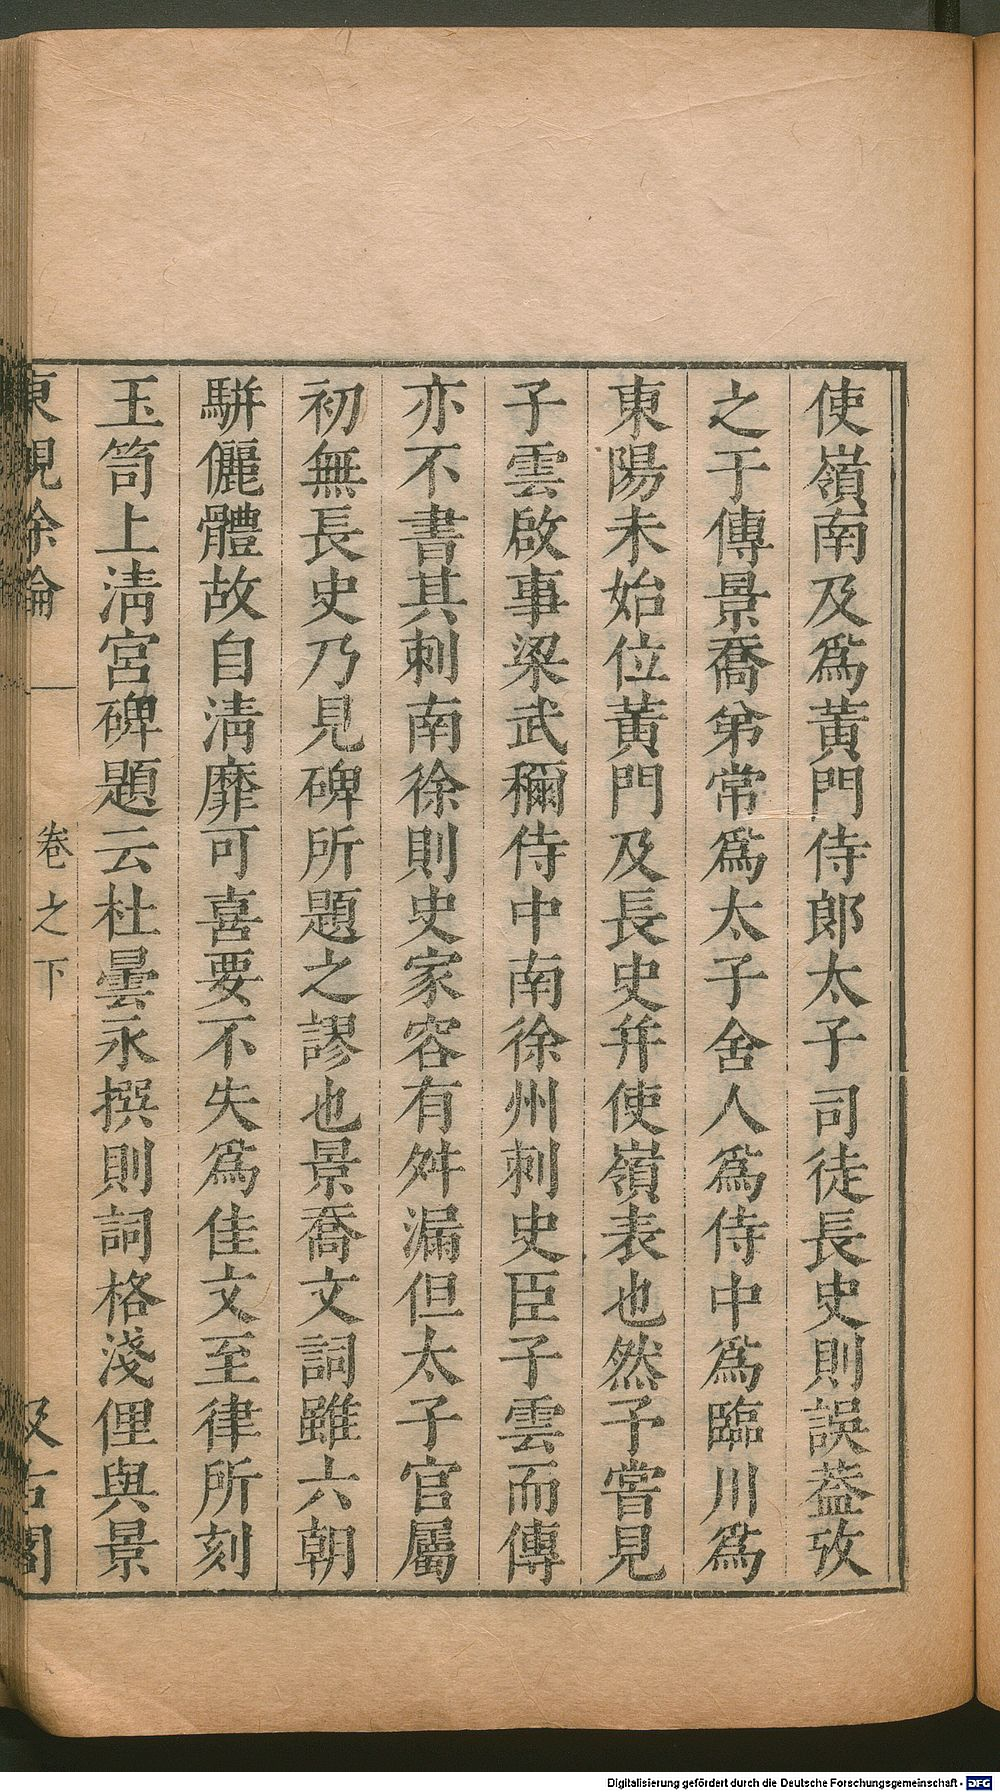 使嶺南及爲黃門侍郎太子司徒長史則誤葢攷
之于傳景喬弟常爲太子舍人爲侍中爲臨川爲
東陽未始位黃門及長史幷使嶺表也然予嘗見
子雲啟事梁武稱侍中南徐州刺史臣子雲而傳
亦不書其刺南徐則史家容有舛漏但太子官屬
初無長史乃見碑所題之謬也景喬文詞雖六朝
駢儷體故自淸靡可喜要不失爲佳文至律所刻
玉笥上淸宮碑題云杜曇永撰則詞格淺俚與景
東觀余論 卷之下 汲古閣
Digitalisierung gefördert durch die Deutsche Forschungsgemeinschaft - DFG